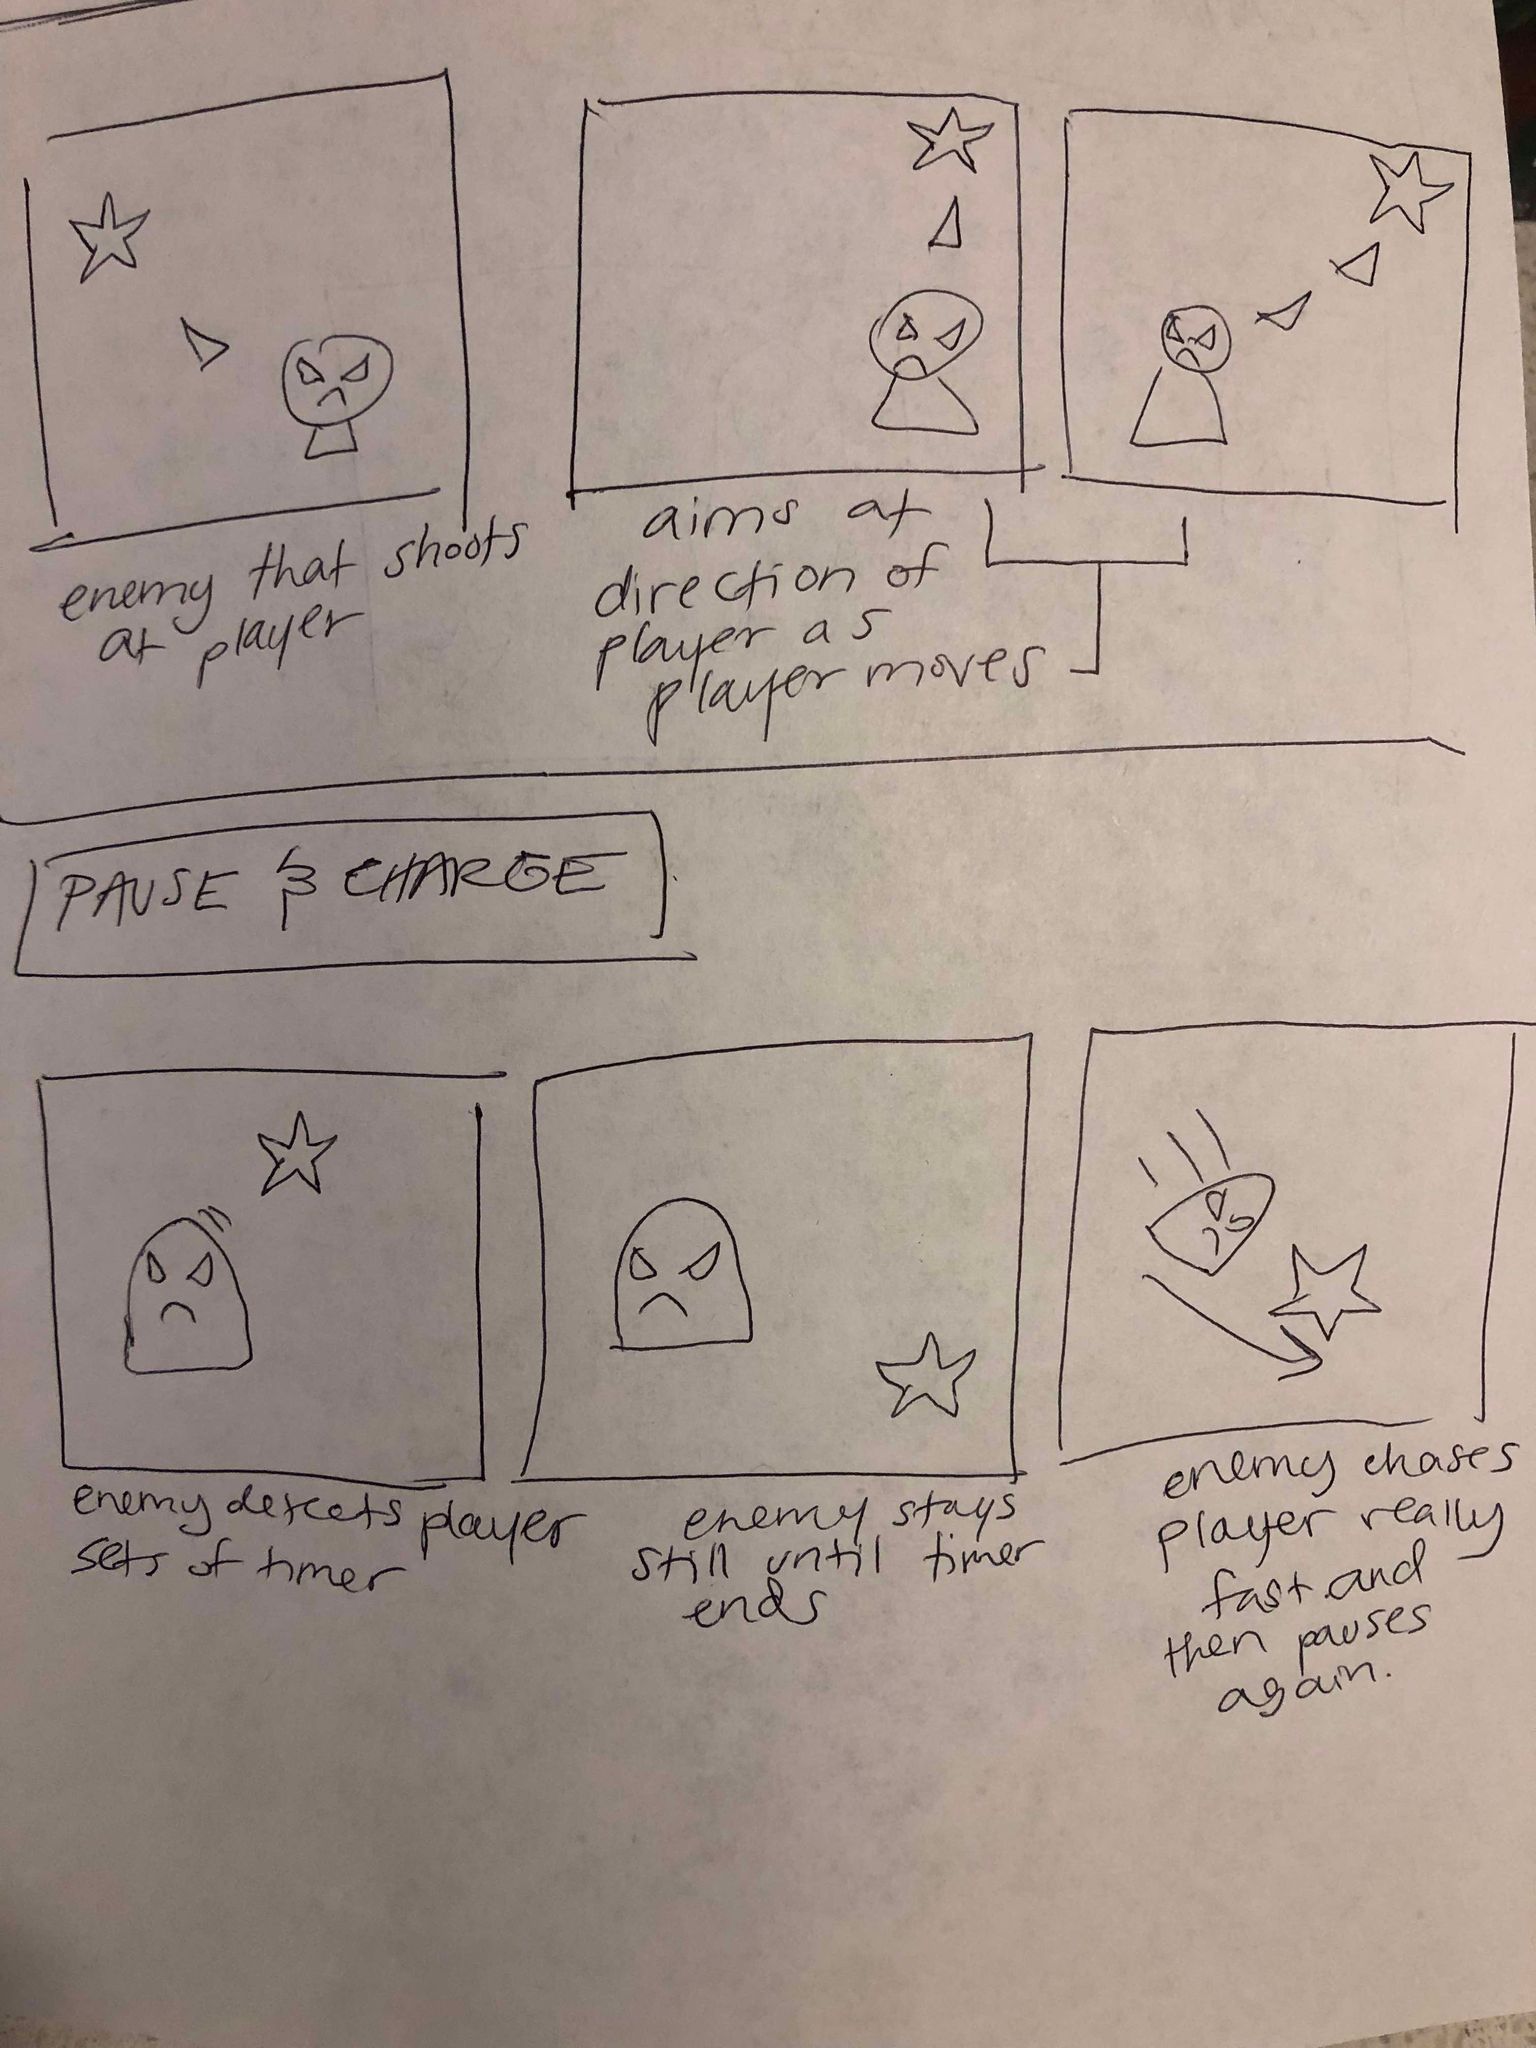 enemy that shoots
at player
aims at
direction of
player as
player moves
PAUSE & CHARGE
enemy detects player
sets of timer
enemy stays
still until timer
ends
enemy chases
player really
fast and
then pauses
again.